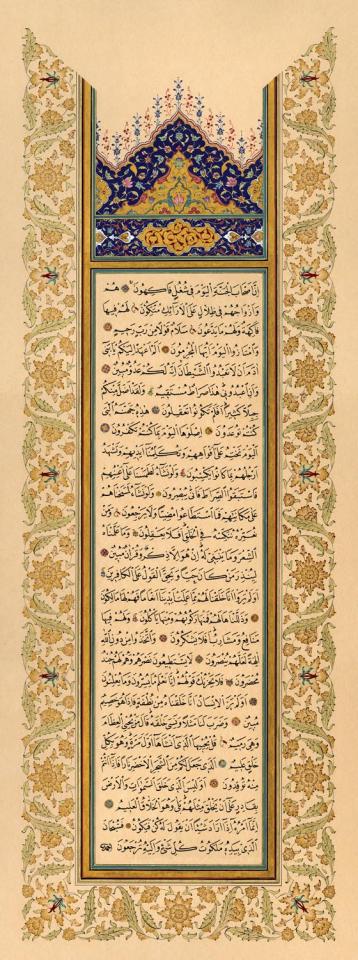 اِنَّ اَصْحَابَ الْجَنَّةِ الْيَوْمَ فِي شُغُلٍ فَاكِهُونَ هُمْ
وَاَزْوَاجُهُمْ فِي ظِلَالٍ عَلَى الْاَرَائِكِ مُتَّكِؤُنَ لَهُمْ فِيهَا
فَاكِهَةٌ وَلَهُمْ مَا يَدَّعُونَ سَلَامٌ قَوْلًا مِنْ رَبٍّ رَحِيمٍ
وَامْتَازُوا الْيَوْمَ اَيُّهَا الْمُجْرِمُونَ اَلَمْ اَعْهَدْ اِلَيْكُمْ يَا بَنِي
اٰدَمَ اَنْ لَا تَعْبُدُوا الشَّيْطَانَ اِنَّهُ لَكُمْ عَدُوٌّ مُبِينٌ
وَاَنِ اعْبُدُونِي هٰذَا صِرَاطٌ مُسْتَقِيمٌ وَلَقَدْ اَضَلَّ مِنْكُمْ
جِبِلًّا كَثِيرًا اَفَلَمْ تَكُونُوا تَعْقِلُونَ هٰذِهِ جَهَنَّمُ الَّتِي
كُنْتُمْ تُوعَدُونَ اِصْلَوْهَا الْيَوْمَ بِمَا كُنْتُمْ تَكْفُرُونَ
اَلْيَوْمَ نَخْتِمُ عَلَى اَفْوَاهِهِمْ وَتُكَلِّمُنَا اَيْدِيهِمْ وَتَشْهَدُ
اَرْجُلُهُمْ بِمَا كَانُوا يَكْسِبُونَ وَلَوْ نَشَاءُ لَطَمَسْنَا عَلَى اَعْيُنِهِمْ
فَاسْتَبَقُوا الصِّرَاطَ فَاَنَّى يُبْصِرُونَ وَلَوْ نَشَاءُ لَمَسَخْنَاهُمْ
عَلَى مَكَانَتِهِمْ فَمَا اسْتَطَاعُوا مُضِيًّا وَلَا يَرْجِعُونَ وَمَنْ
نُعَمِّرْهُ نُنَكِّسْهُ فِي الْخَلْقِ اَفَلَا يَعْقِلُونَ وَمَا عَلَّمْنَاهُ
الشِّعْرَ وَمَا يَنْبَغِي لَهُ اِنْ هُوَ اِلَّا ذِكْرٌ وَقُرْاٰنٌ مُبِينٌ
لِيُنْذِرَ مَنْ كَانَ حَيًّا وَيَحِقَّ الْقَوْلُ عَلَى الْكَافِرِينَ
اَوَلَمْ يَرَوْا اَنَّا خَلَقْنَا لَهُمْ مِمَّا عَمِلَتْ اَيْدِينَا اَنْعَامًا فَهُمْ لَهَا مَالِكُونَ
وَذَلَّلْنَاهَا لَهُمْ فَمِنْهَا رَكُوبُهُمْ وَمِنْهَا يَأْكُلُونَ وَلَهُمْ فِيهَا
مَنَافِعُ وَمَشَارِبُ اَفَلَا يَشْكُرُونَ وَاتَّخَذُوا مِنْ دُونِ اللّٰهِ
اٰلِهَةً لَعَلَّهُمْ يُنْصَرُونَ لَا يَسْتَطِيعُونَ نَصْرَهُمْ وَهُمْ لَهُمْ جُنْدٌ
مُحْضَرُونَ فَلَا يَحْزُنْكَ قَوْلُهُمْ اِنَّا نَعْلَمُ مَا يُسِرُّونَ وَمَا يُعْلِنُونَ
اَوَلَمْ يَرَ الْاِنْسَانُ اَنَّا خَلَقْنَاهُ مِنْ نُطْفَةٍ فَاِذَا هُوَ خَصِيمٌ
مُبِينٌ وَضَرَبَ لَنَا مَثَلًا وَنَسِيَ خَلْقَهُ قَالَ مَنْ يُحْيِي الْعِظَامَ
وَهِيَ رَمِيمٌ قُلْ يُحْيِيهَا الَّذِي اَنْشَاَهَا اَوَّلَ مَرَّةٍ وَهُوَ بِكُلِّ
خَلْقٍ عَلِيمٌ اَلَّذِي جَعَلَ لَكُمْ مِنَ الشَّجَرِ الْاَخْضَرِ نَارًا فَاِذَا اَنْتُمْ
مِنْهُ تُوقِدُونَ اَوَلَيْسَ الَّذِي خَلَقَ السَّمٰوَاتِ وَالْاَرْضَ
بِقَادِرٍ عَلَى اَنْ يَخْلُقَ مِثْلَهُمْ بَلَى وَهُوَ الْخَلَّاقُ الْعَلِيمُ
اِنَّمَا اَمْرُهُ اِذَا اَرَادَ شَيْئًا اَنْ يَقُولَ لَهُ كُنْ فَيَكُونُ فَسُبْحَانَ
الَّذِي بِيَدِهِ مَلَكُوتُ كُلِّ شَيْءٍ وَاِلَيْهِ تُرْجَعُونَ